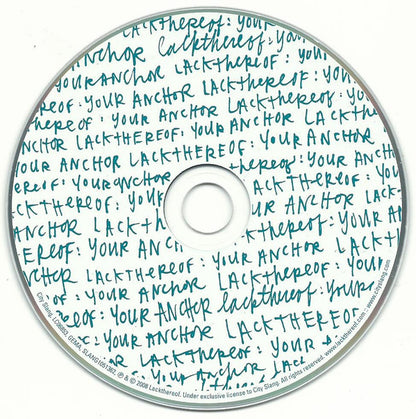 LACKTHEREOF: YOUR
ANCHOR lackthereof: YOUR
YOUR ANCHOR LACKTHEREOF:
REOF: YOUR ANCHOR LACKTHEREOF: YOUR
hereof: YOUR ANCHOR LACKTHEREOF: YOUR
LACKTHEREOF: YOUR ANCHOR LACKTH
YOUR ANCHOR LACKTHEREOF: YOUR ANCHOR
ereof: YOUR ANCHOR lackthereof: YOUR
ACKTHEREOF: LACKTHEREOF:
ANCHOR Lackth YOUR ANCHOR
EREOF: YOUR ANCH LACKTHEREOF:
NCHOR LACKTHEREOF: YOUR ANCHOR
LACKTHEREOF: YOUR
of: YOUR ANCHOR LACKTHEREOF: YOUR
eof: YOUR ANCHOR lackthereof: YOUR
: YOUR ANCHOR LACKTHEREOF
ANCHOR LACKTHEREOF: YOUR
: YOUR ANCHOR LACK
City Slang, GEMA, ℗ & © 2008 Lackthereof. Under exclusive license to City Slang. All rights reserved. www.lackthereof.com - www.cityslang.com